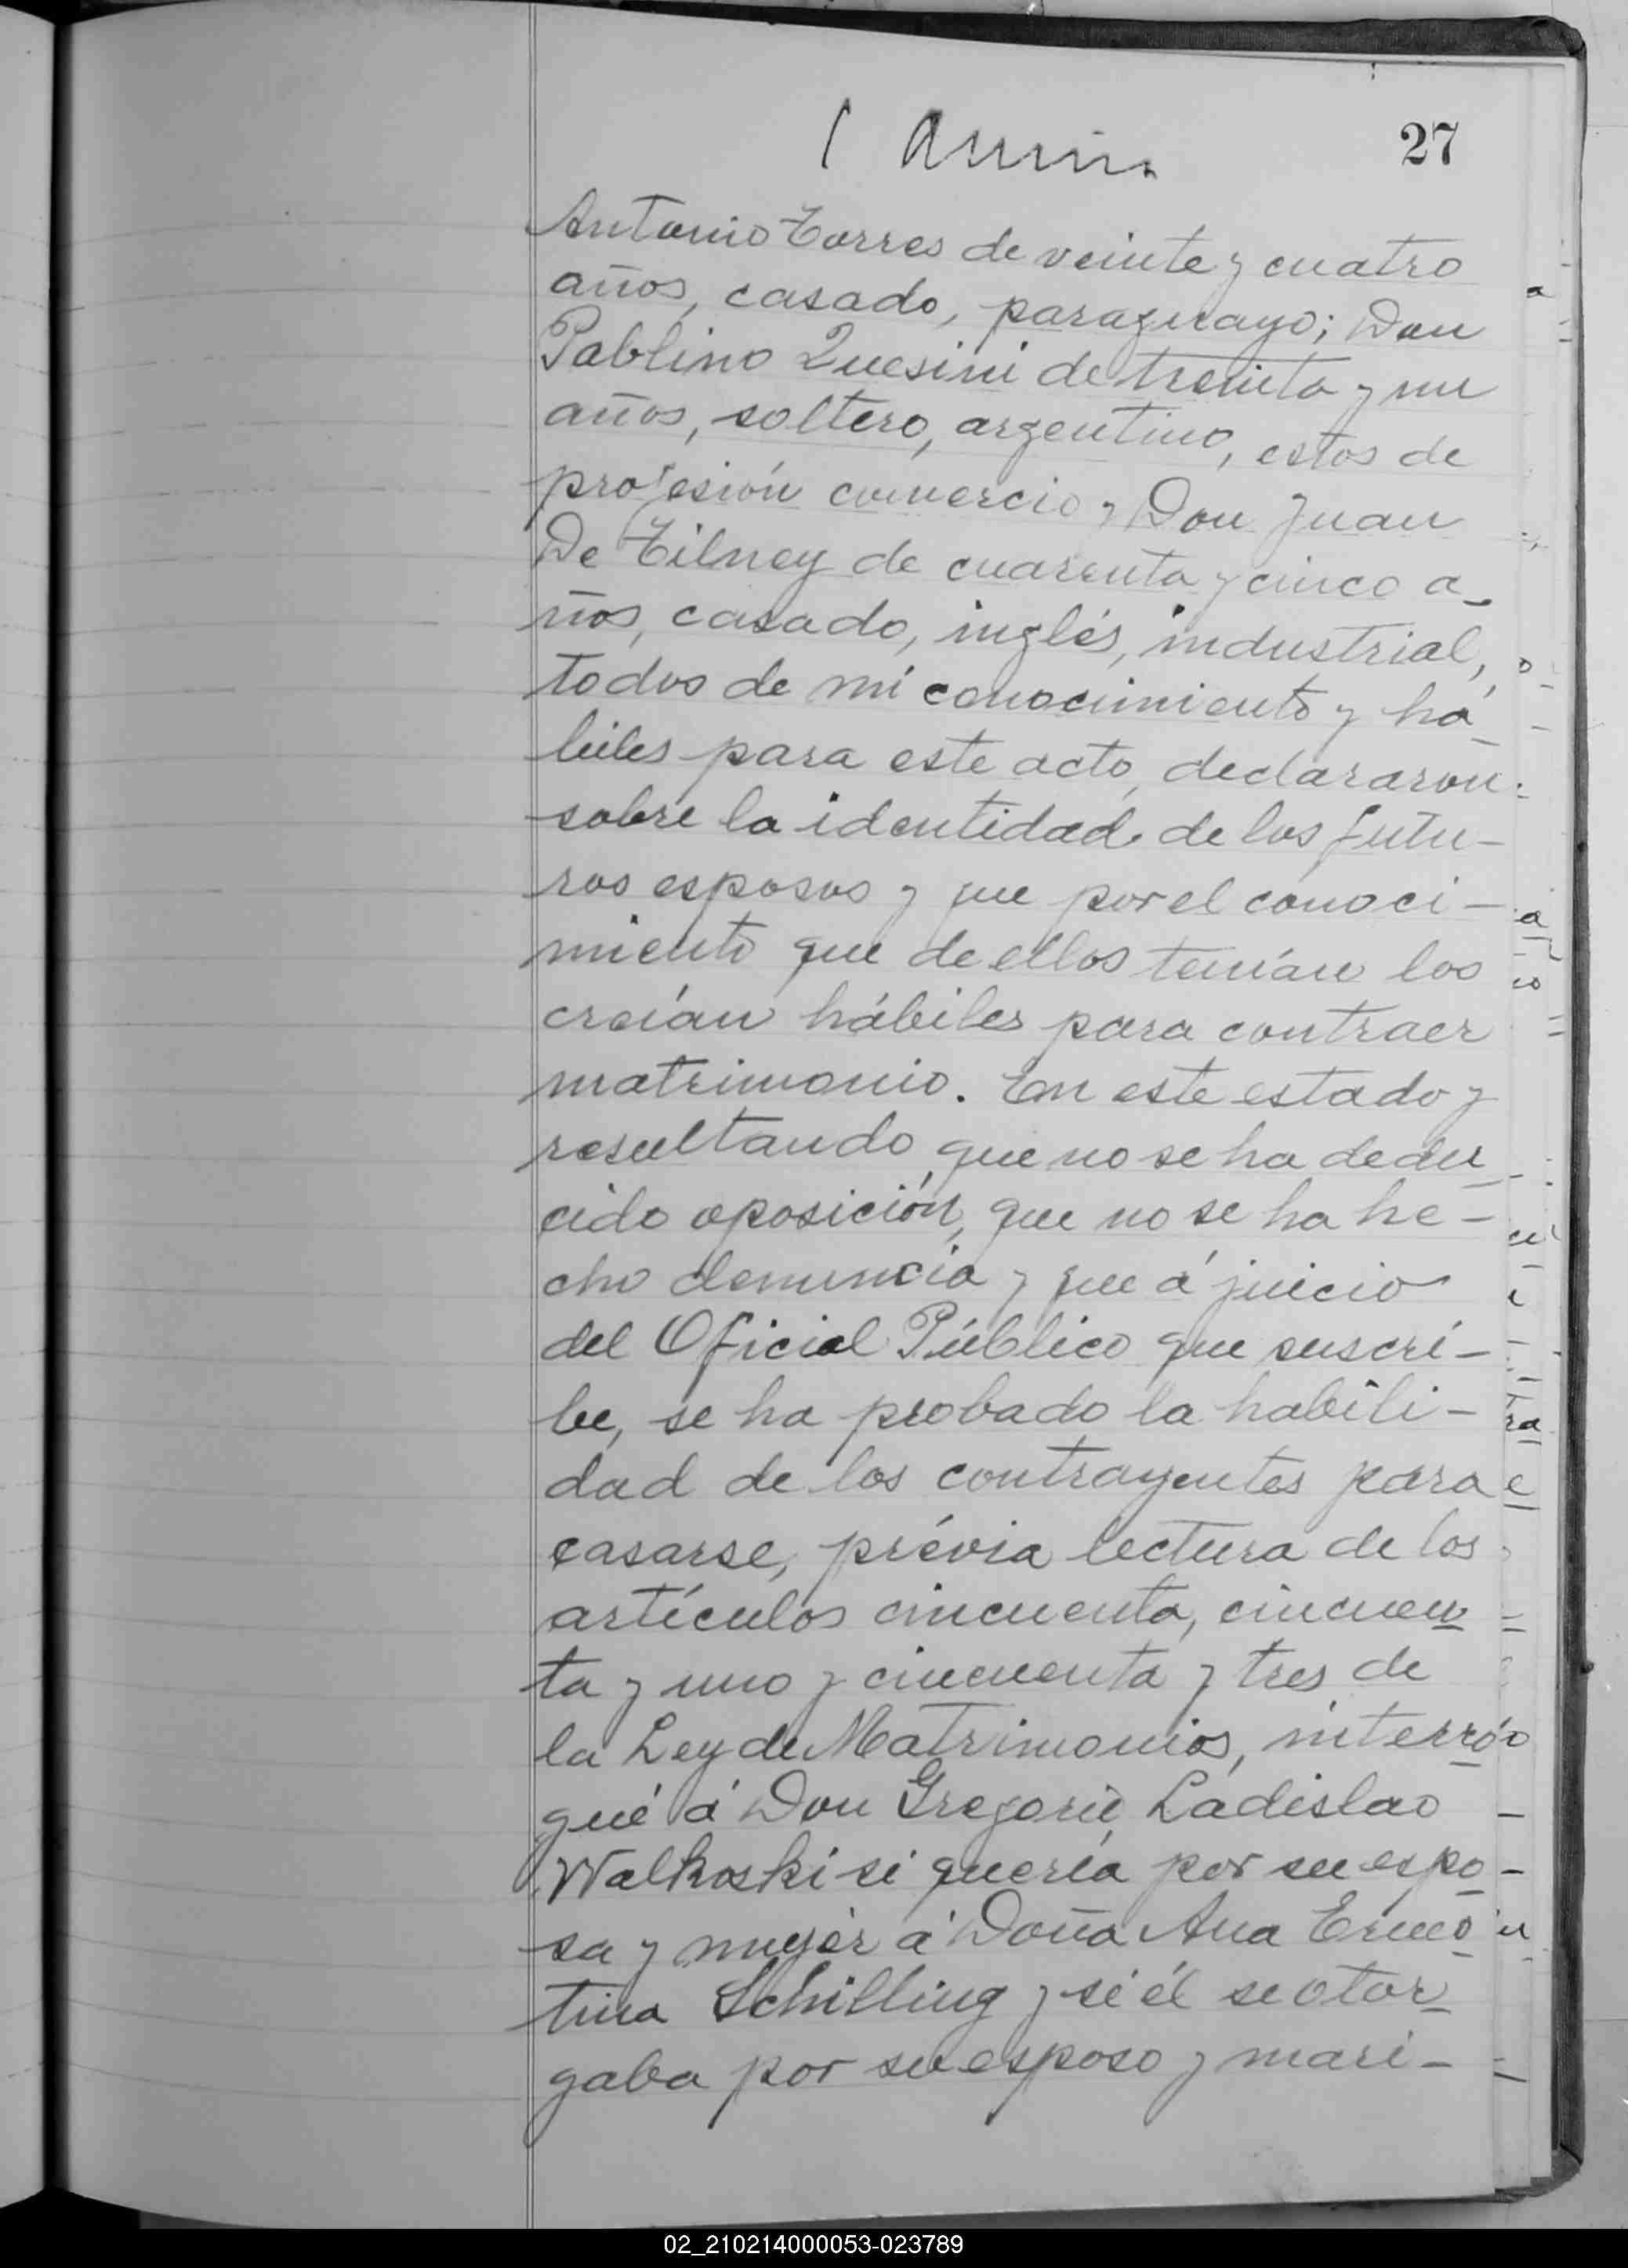 27
Antonio Torres de veinte y cuatro
años, casado, paraguayo; Don
Pablino Quesini de treinta y un
años, soltero, argentino, estos de
profesión comercio y Don Juan
De Tilney de cuarenta y cinco a-
ños, casado, inglés, industrial,
todos de mi conocimiento y há-
biles para este acto, declararon
sobre la identidad de los futu-
ros esposos y que por el conoci-
miento que de ellos tenían los
creían hábiles para contraer
matrimonio. En este estado y
resultando que no se ha dedu-
cido oposición, que no se ha he-
cho denuncia y que á juicio
del Oficial Público que suscri-
be, se ha probado la habili-
dad de los contrayentes para
casarse, prévia lectura de los
artículos cincuenta, cincuen-
ta y uno y cincuenta y tres de
la Ley de Matrimonios, interro-
gué á Don Gregorio Ladislao
Walkoski si quería por su espo-
sa y mujer á Doña Ana
tina Schilling y si él se otor-
gaba por su esposo y mari-
02_210214000053-023789